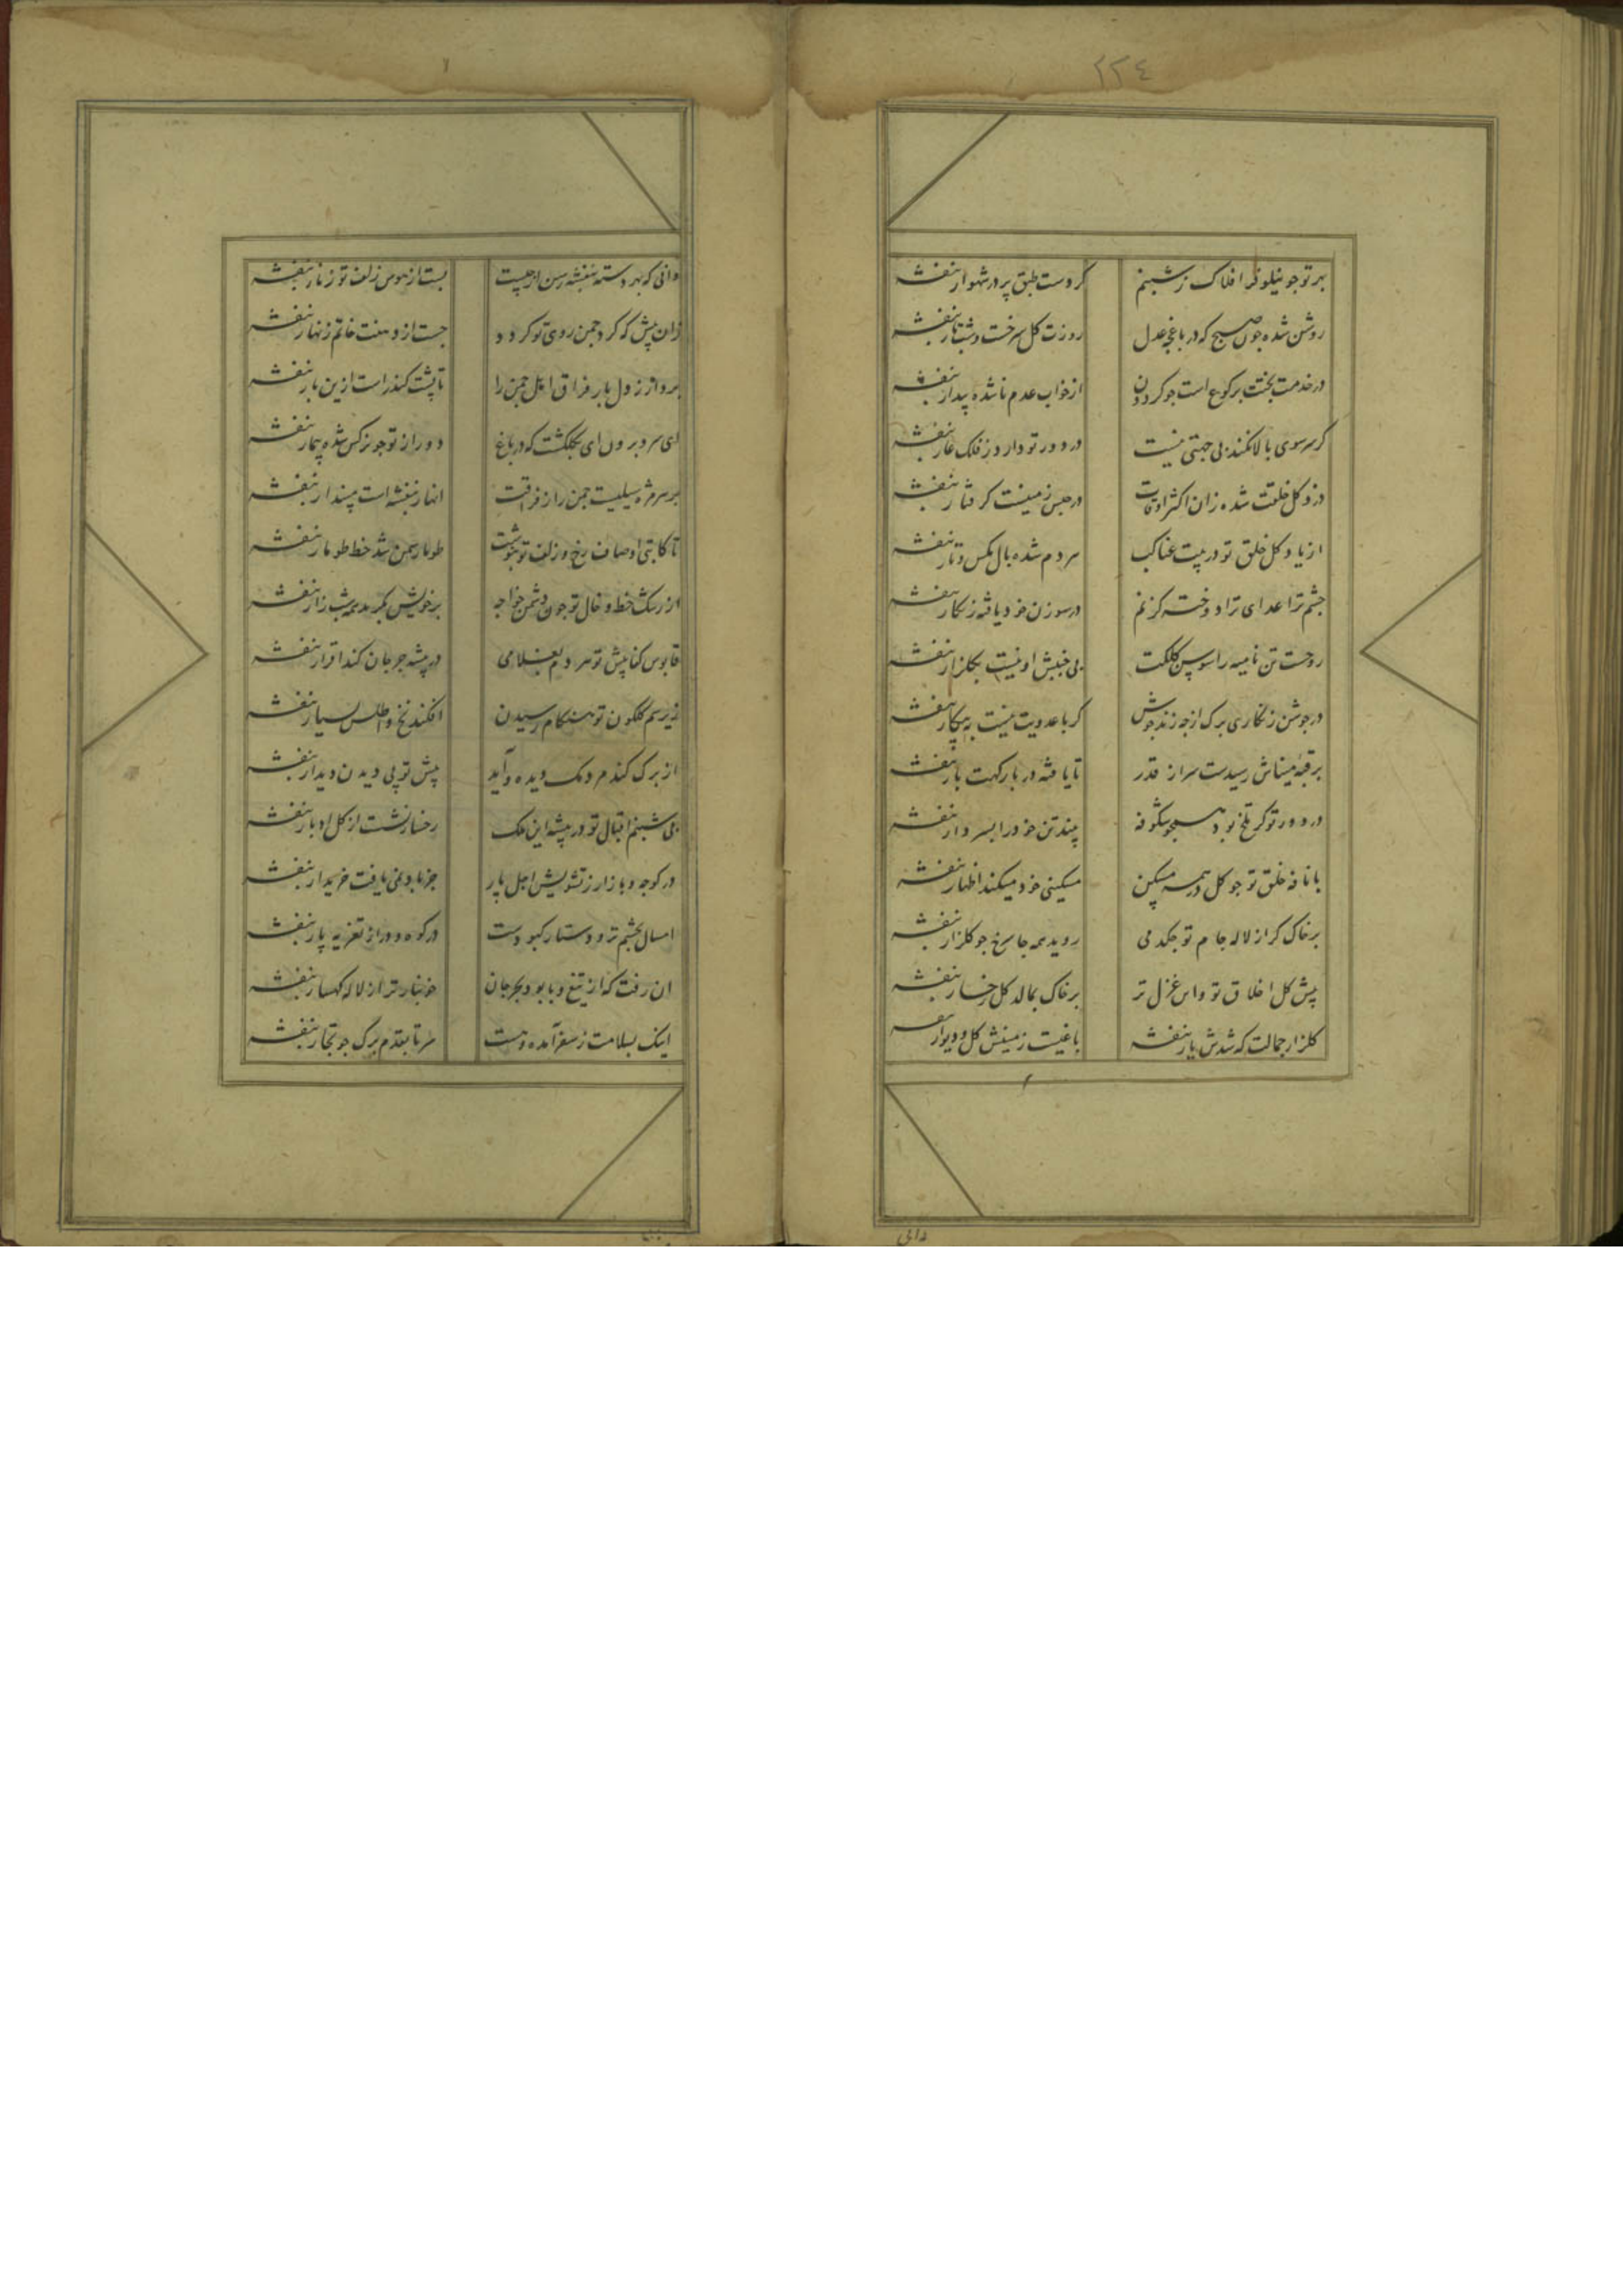 ٢٢٤
بر تو جو نیلوفر افلاک ز شبنم کردست طبق پر در شهوار بنفشه
روشن شده چون صبح که در باغچه عدل روزت کل سرخست و شبت تار بنفشه
در خدمت بختت برکوع است جو کردون از خواب عدم ناشده بیدار بنفشه
کر سر سوی بالا نکند بی جهتی نیست در دور تو دارد ز فلک عار بنفشه
دزد کل خلقت شده زان اکثر اوقات در حبس زمینست کرفتار بنفشه
از یاد کل خلق تو در بیت عناکب سر دم شده بال مکس و تار بنفشه
جشم ترا عدای ترا دوخته کز نم در سوزن خود یافته زنکار بنفشه
روحست تن نامیه را سوسن کلکت بی جنبش او نیست بکلزار بنفشه
در جوشن زنکاری برک از جه زند جوش کر با عدویت نیست به پیکار بنفشه
بر قبه میناش رسیدست سر از قدر تا یافته در بارکهت بار بنفشه
در دور تو کر تلخ بود همجو شکوفه بیند تن خود را بسر دار بنفشه
با نافه خلق تو جو کل در همه مسکین مسکینی خود میکند اظهار بنفشه
بر خاک کر از لاله جام تو جکد می روید همه جا سرخ جو کلزار بنفشه
پیش کل اخلاق تو و این غزل تر بر خاک بمالد کل رخسار بنفشه
کلزار جمالت که شدش یار بنفشه باغیست زمینش کل و دیوار بنفشه
دانی
دانی که بهر دسته بنفشه رسن از جیست بست از هوس زلف تو زنار بنفشه
زان پیش که کرد جمن روی تو کردد جست از دهنت خاتم زنهار بنفشه
بردار ز دل بار فراق اهل جمن را تا پشت کند راست ازین بار بنفشه
ای سرو برون ای بکلکشت که در باغ دور از تو جو نرکس شده بیمار بنفشه
بر سر مژه سیلیست جمن را ز فراقت انها ز بنفشه است مپندار بنفشه
تا کاتبی اوصاف رخ و زلف تو بنوشت طومار سمن شد خط طومار بنفشه
از رشک خط و خال تو جون دشمن خواجه بر خویش بکرید همه شب زار بنفشه
قابوس کنا پیش تو هر دم بغلامی در بیشه جرجان کند اقرار بنفشه
زیر سم کلکون تو هنکام رسیدن افکند نخ و اطلس بسیار بنفشه
از برک کند مردمک دیده و آید پیش تو پی دیدن دیدار بنفشه
بی شبنم اقبال تو در بیشه این ملک رخسار نشست از کل ادبار بنفشه
در کوجه و بازار ز تشویش اجل پار جز باد نمی یافت خریدار بنفشه
امسال بجشم تر و دستار کبودست در کوه و در از تعزیه پار بنفشه
ان رفت که از تیغ وبا بود بجرجان خونبارتر از لاله کهسار بنفشه
اینک بسلامت ز سفر آمده و هست سر تا بقدم برک جو تجار بنفشه